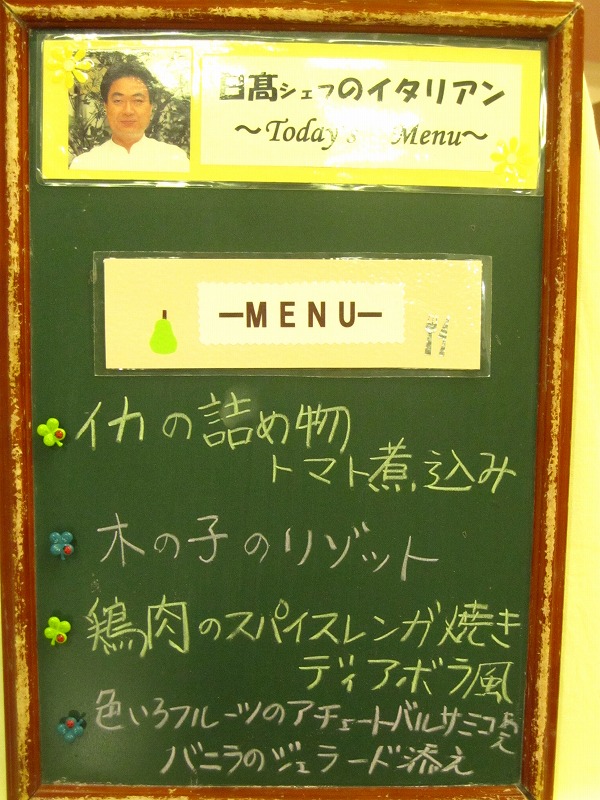 日髙シェフのイタリアン
～Today's Menu～
ーMENUー
イカの詰め物
トマト煮込み
木の子のリゾット
鶏肉のスパイスレンガ焼き
ディアボラ風
色いろフルーツのアチェートバルサミコあえ
バニラのジェラード添え